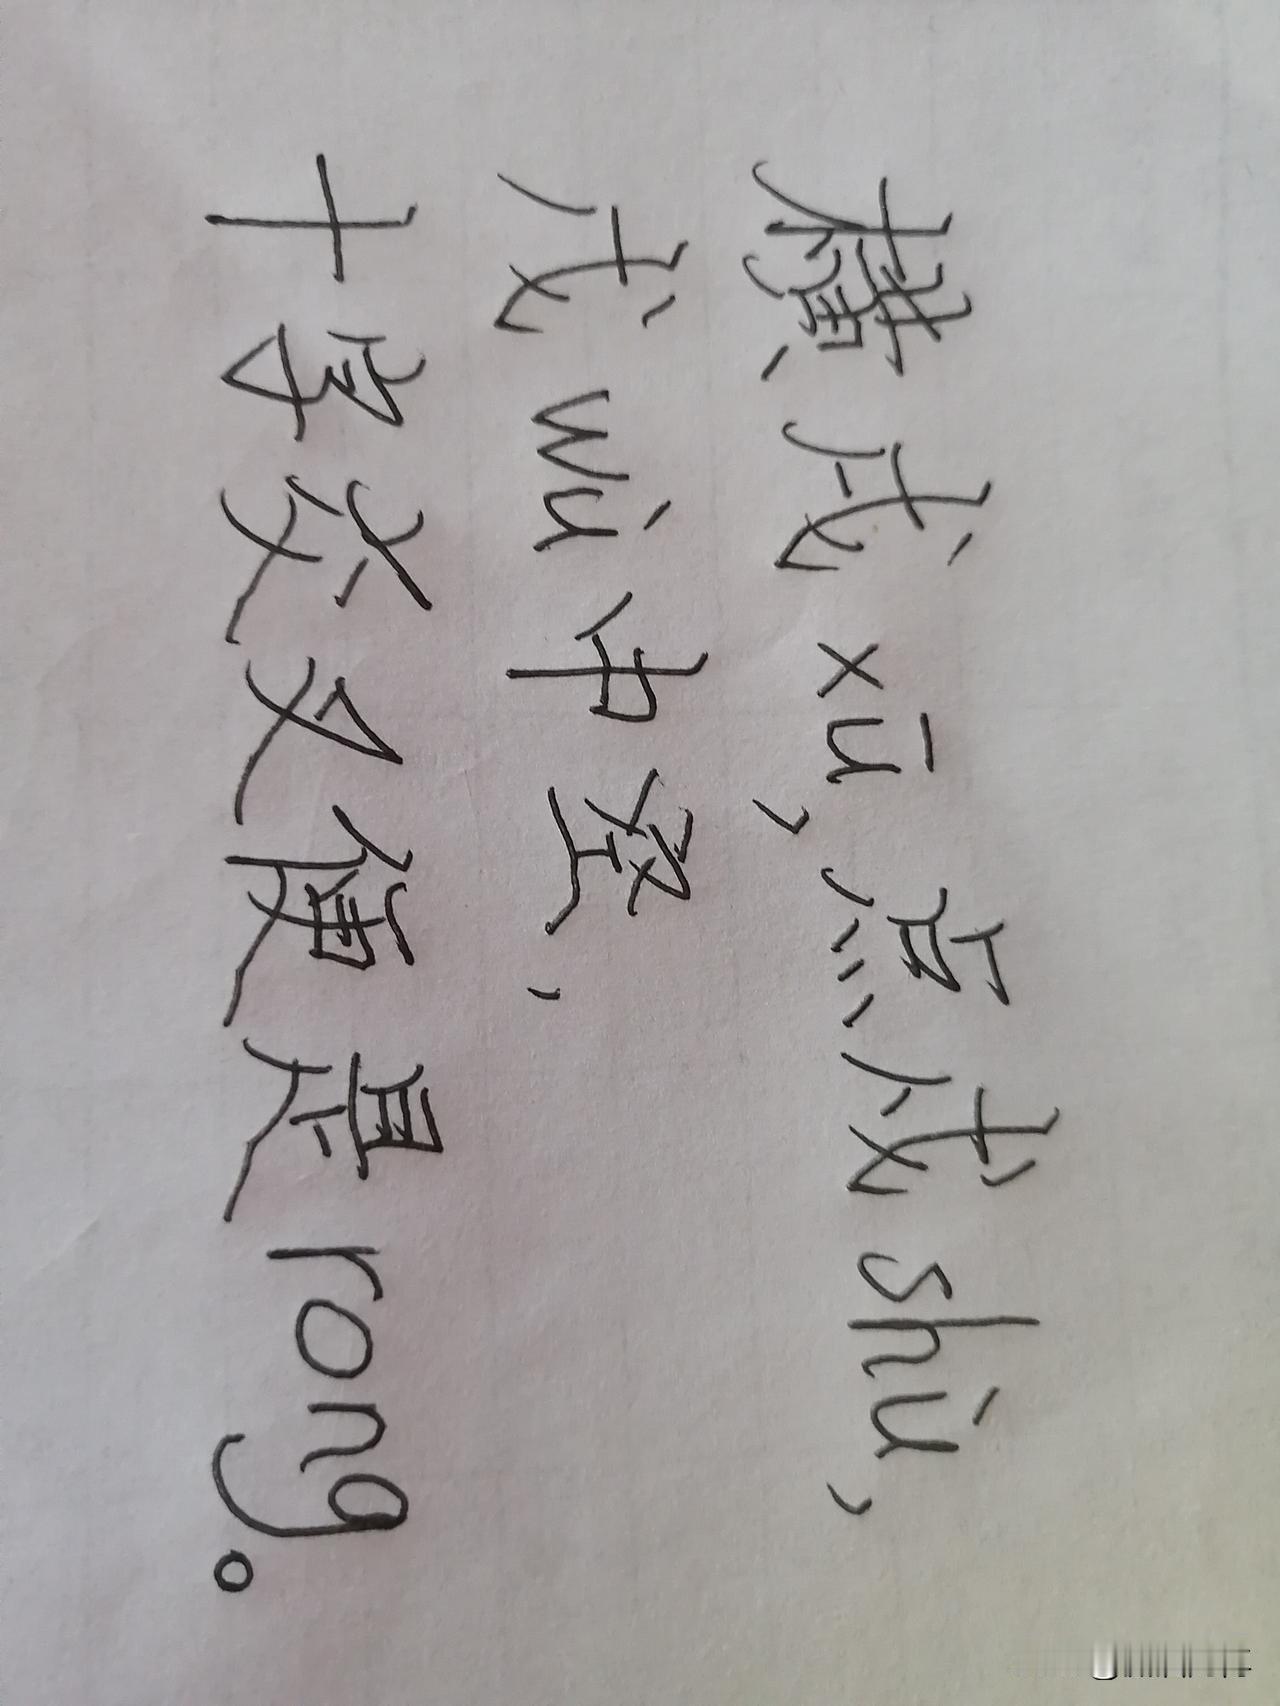 横戌xū，点戍shù，
戊wù中空，
十字交叉便是rong。